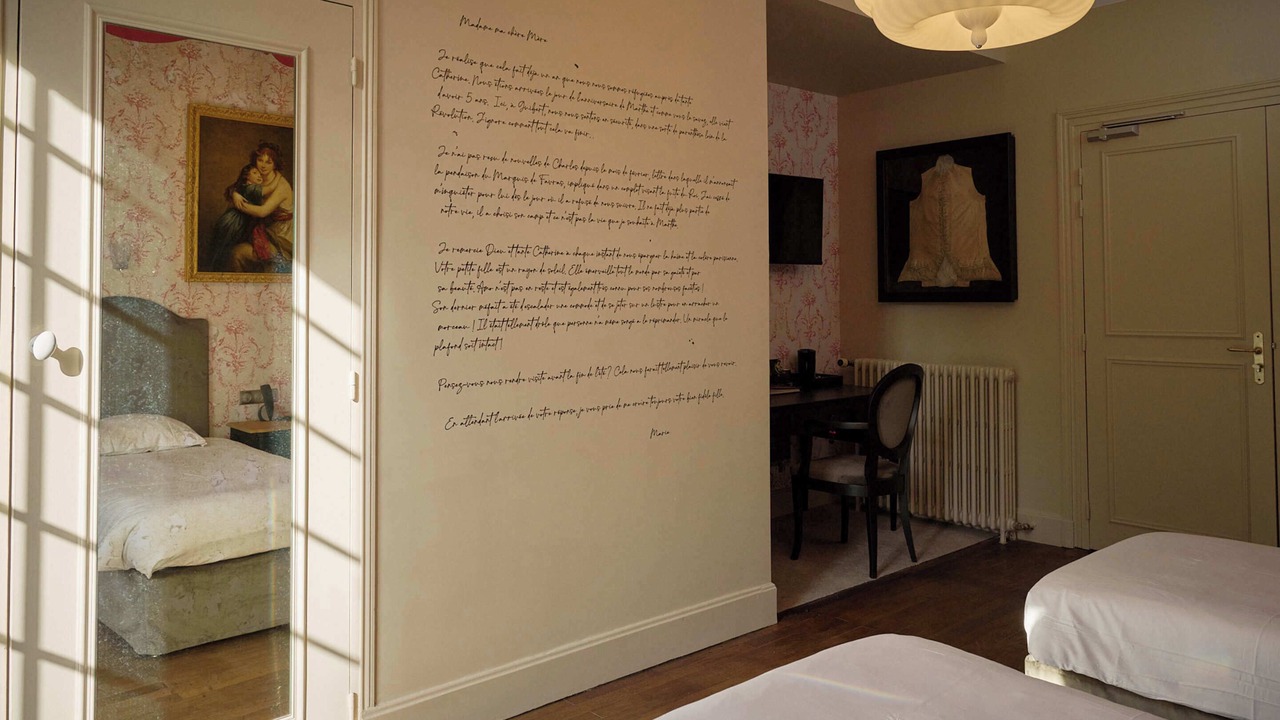 Madame ma chère Mère
Je réalise que cela fait déjà un an que nous nous sommes réfugiées auprès de tante
Catherine. Nous étions arrivées le jour de l'anniversaire de Martha et comme vous le savez, elle vient
d'avoir 5 ans. Ici, à Guibert, nous nous sentons en sécurité, dans une sorte de parenthèse loin de la
Révolution. J'ignore comment tout cela va finir...
Je n'ai pas reçu de nouvelles de Charles depuis le mois de février, lettre dans laquelle il m'annonçait
la pendaison du Marquis de Favras, impliqué dans un complot visant la fuite du Roi. J'ai cessé de
m'inquiéter pour lui dès le jour où il a refusé de nous suivre. Il ne fait déjà plus partie de
notre vie, il a choisi son camp et ce n'est pas la vie que je souhaite à Martha
Je remercie Dieu et tante Catherine à chaque instant de nous épargner la haine et la colère parisienne.
Votre petite fille est un rayon de soleil. Elle émerveille tout le monde par sa gaieté et par
sa beauté. n'est pas en reste et est également très connu pour ses nombreuses facéties !
Son dernier méfait a été d'escalader une commode et de se jeter sur un lustre pour en arracher un
morceau ! Il était tellement drôle que personne n'a même songé à le réprimander. Un miracle que le
plafond soit intact !
Pensez-vous nous rendre visite avant la fin de l'été ? Cela nous ferait tellement plaisir de vous revoir.
En attendant l'arrivée de votre réponse, je vous prie de me croire toujours votre bien fidèle fille,
Marie